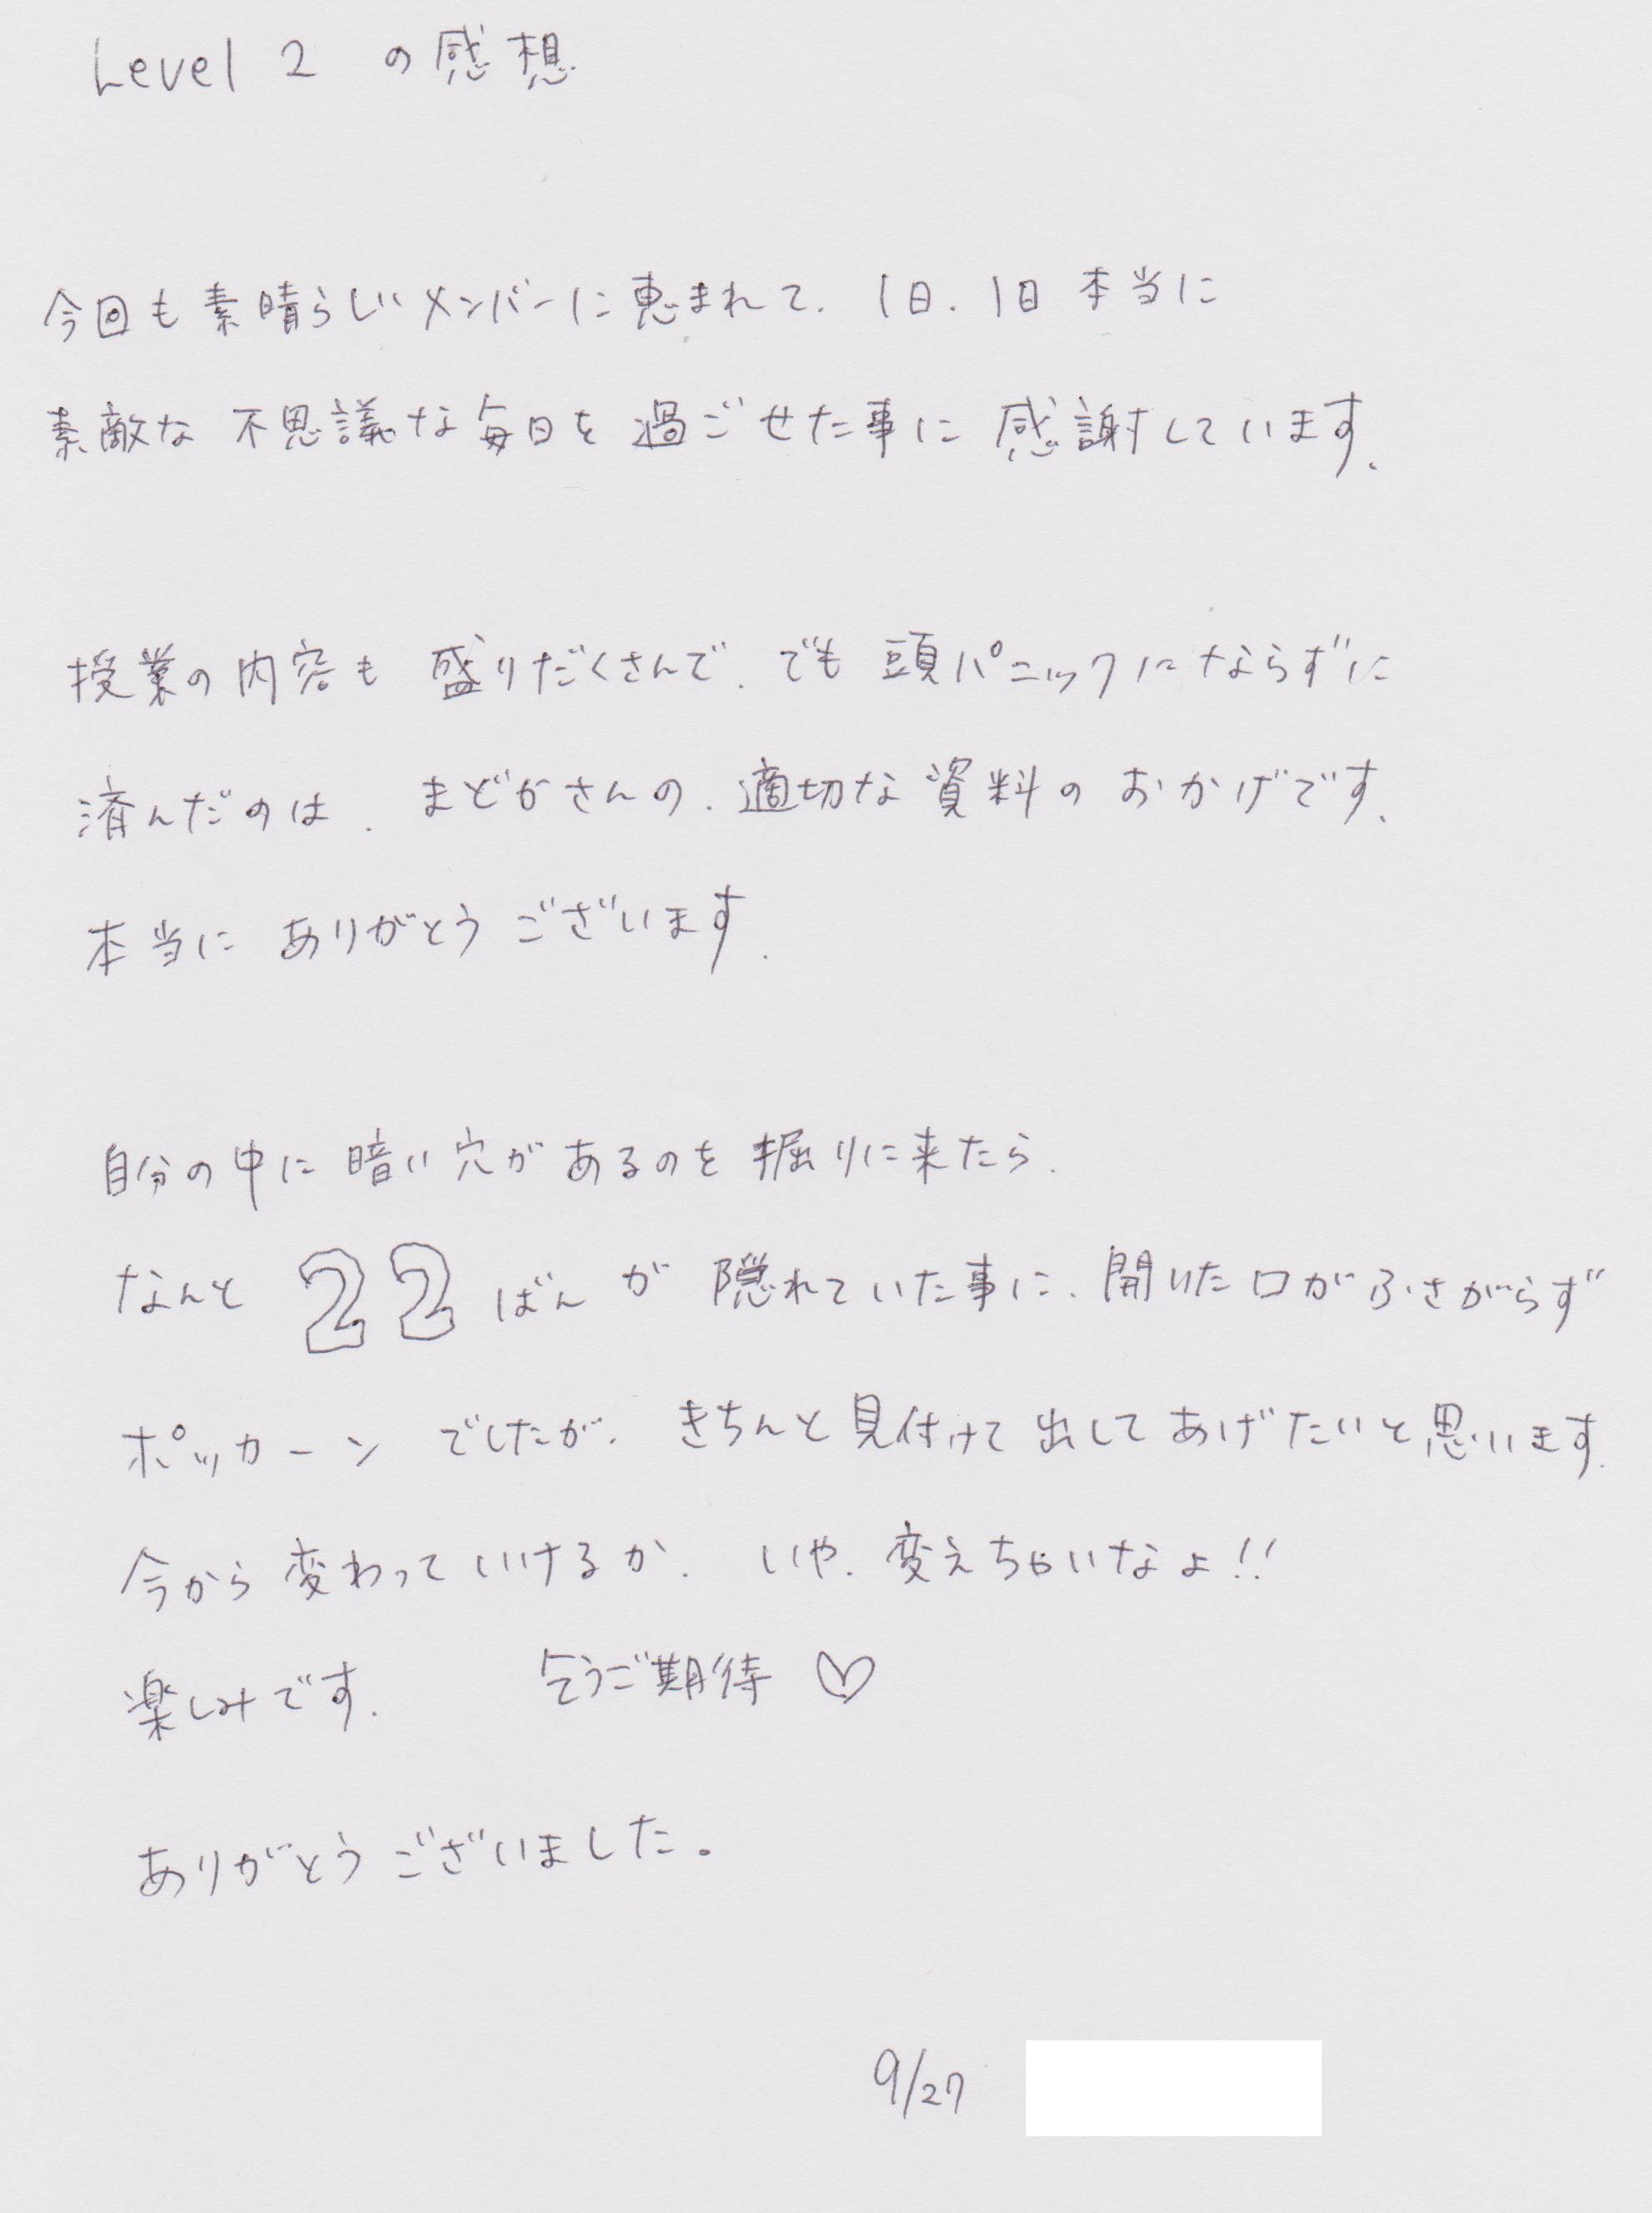 Level 2 の感想
今回も素晴らしいメンバーに恵まれて、1日、1日本当に
素敵な不思議な毎日を過ごせた事に感謝しています、
授業の内容も盛りだくさんで、でも頭パニックにならずに
済んだのは、まどかさんの、適切な資料のおかげです、
本当にありがとうございます、
自分の中に暗い穴があるのを掘りに来たら、
なんと22ばんが隠れていた事に、開いた口がふさがらず
ポッカーンでしたが、きちんと見付けて出してあげたいと思います、
今から変わっていけるか、いや、変えちゃいなよ!!
楽しみです、 乞うご期待 ♡
ありがとうございました。
9/27